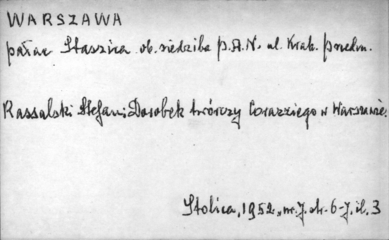 WARSZAWA
pałac Staszica ob. siedziba P.A.N. ul. Krak. Przedm.
Kassalski Stefan: Dorobek twórczy Corazziego w Warszawie.
Stolica, 1952, nr. 7. str. 6-7, il. 3